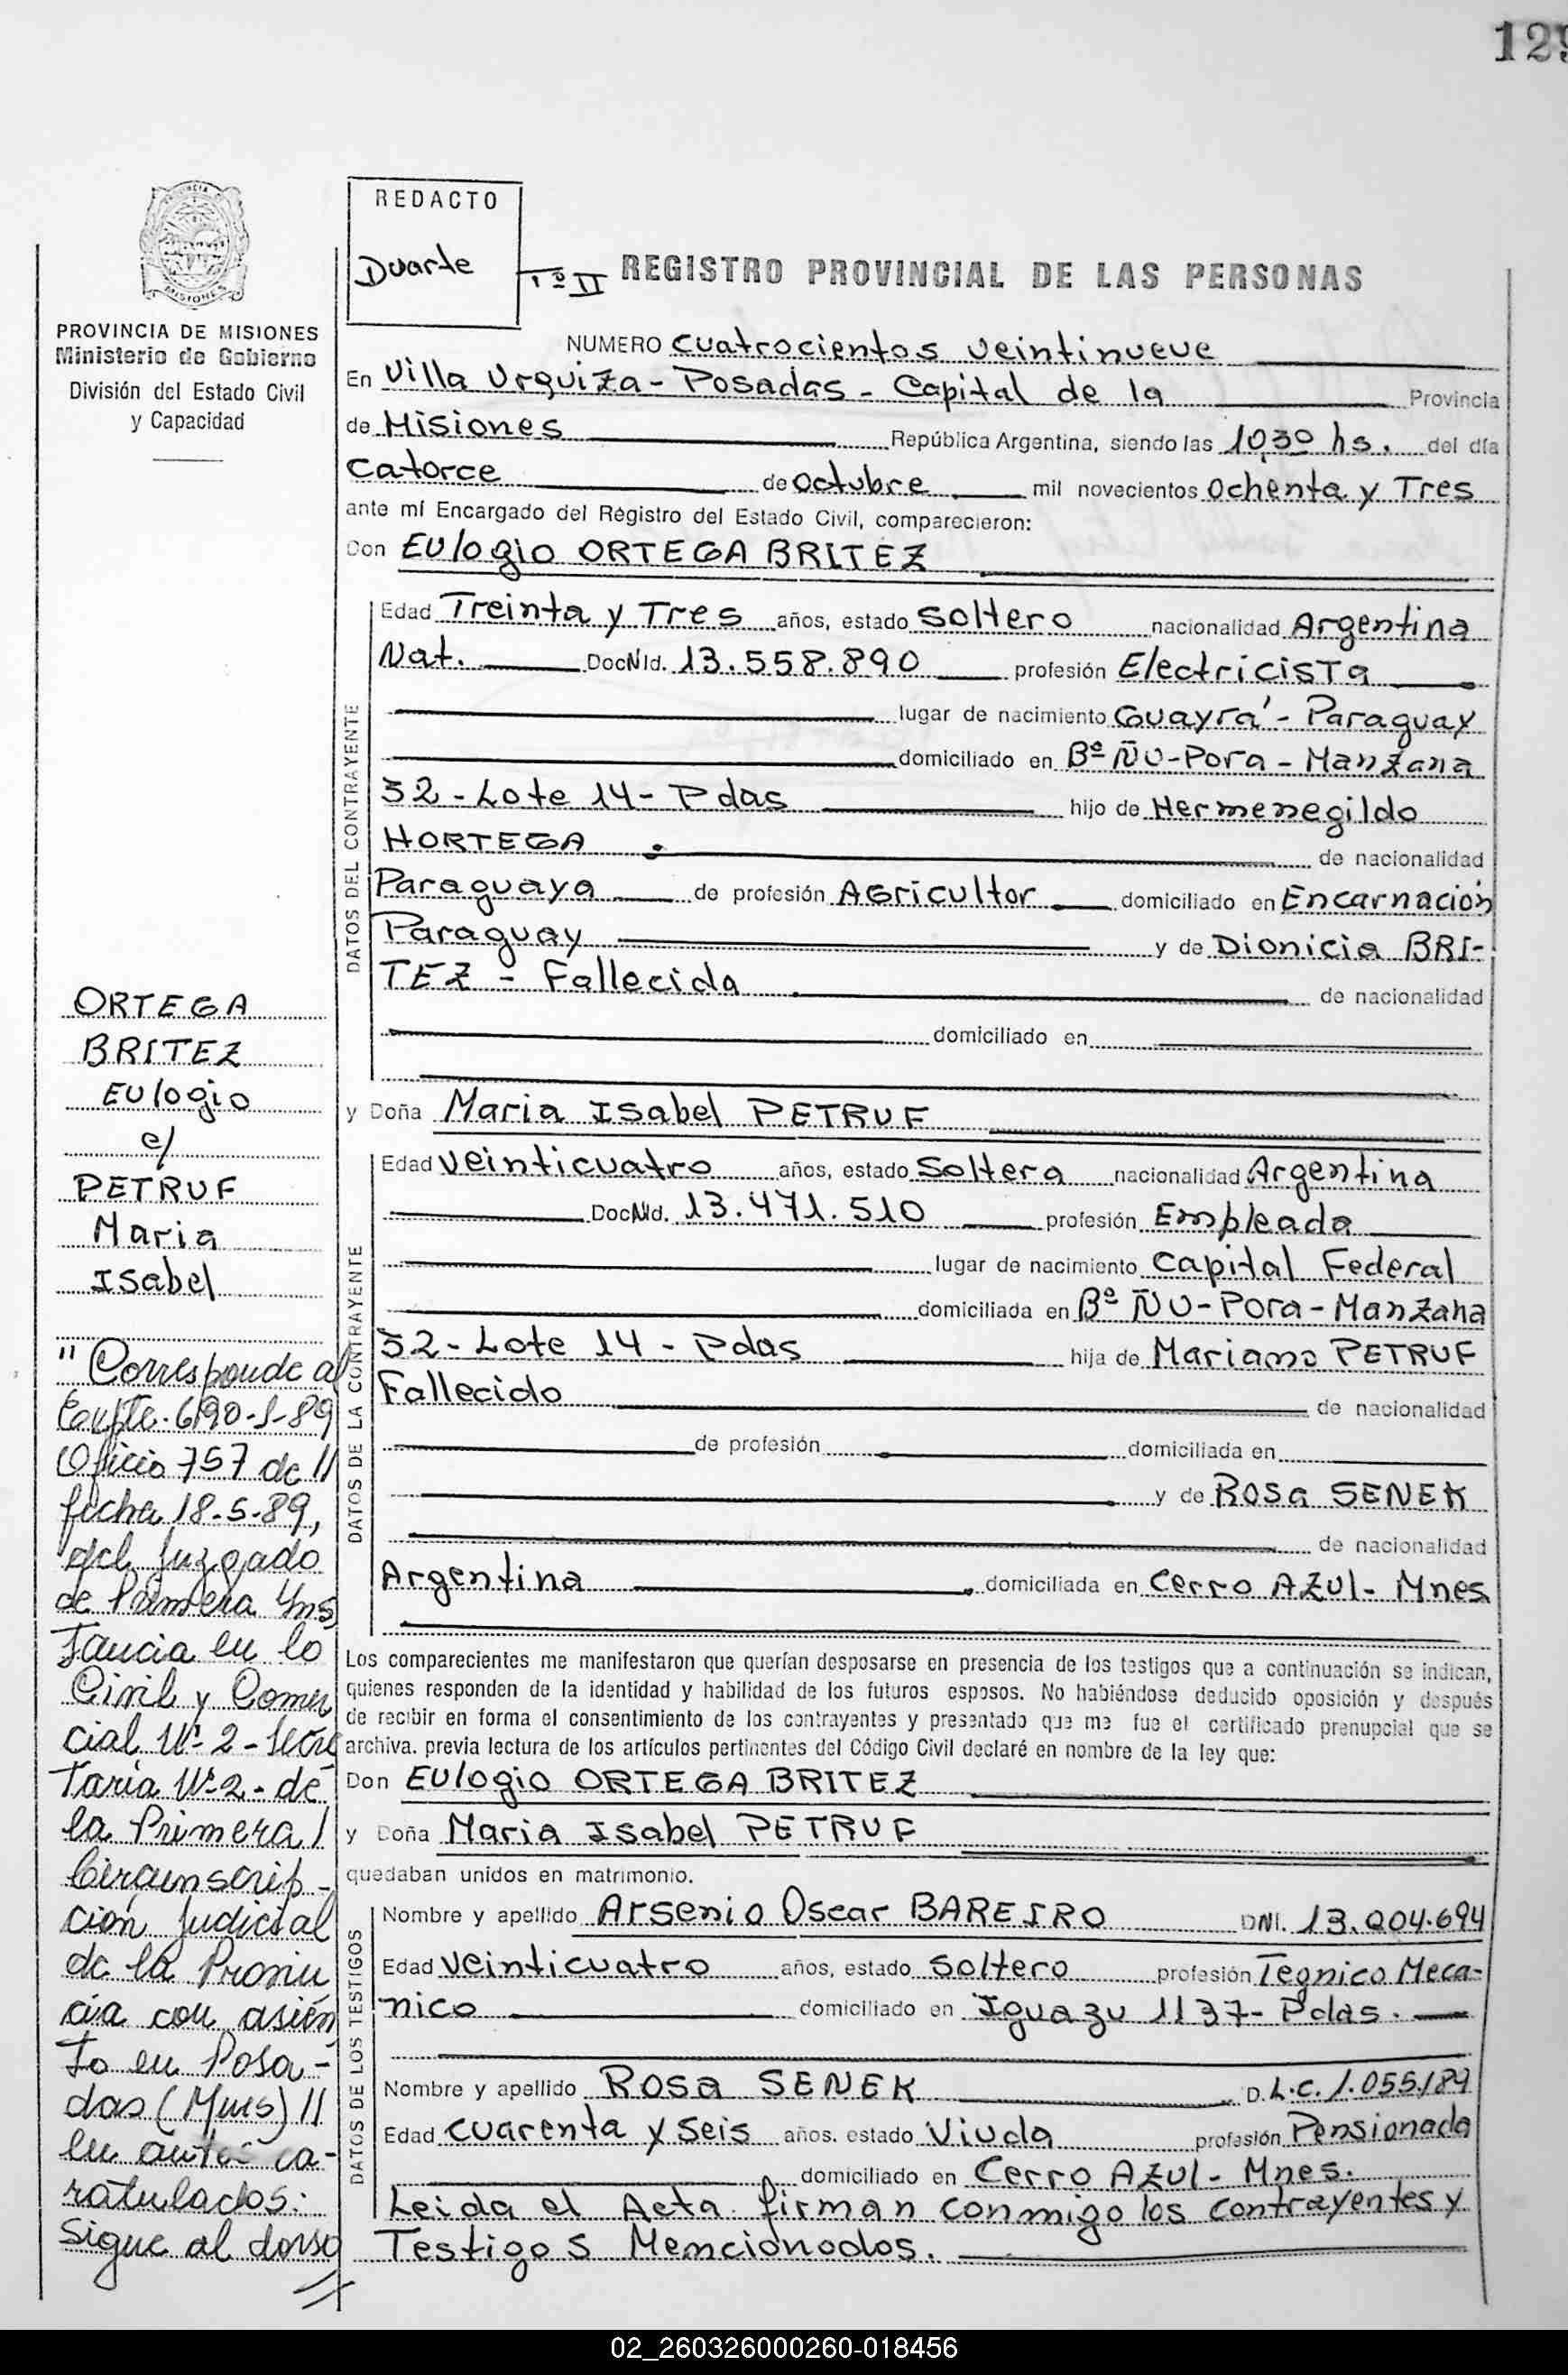 129
REDACTO
Duarte
Tº II
REGISTRO PROVINCIAL DE LAS PERSONAS
PROVINCIA
MISIONES
PROVINCIA DE MISIONES
Ministerio de Gobierno
División del Estado Civil
y Capacidad
NUMERO cuatrocientos veintinueve
En Villa Urquiza - Posadas - Capital de la Provincia
de Misiones República Argentina, siendo las 10,30 hs. del día
catorce de octubre mil novecientos ochenta y Tres
ante mí Encargado del Registro del Estado Civil, comparecieron:
Don Eulogio ORTEGA BRITEZ
DATOS DEL CONTRAYENTE
Edad Treinta y Tres años, estado soltero nacionalidad Argentina
Nat. Doc NId. 13.558.890 profesión Electricista
lugar de nacimiento Guayrá - Paraguay
domiciliado en Bº Ñu-Pora - Manzana
32 - Lote 14 - Pdas hijo de Hermenegildo
HORTEGA de nacionalidad
Paraguaya de profesión Agricultor domiciliado en Encarnación
Paraguay y de Dionicia BRI-
TEZ - Fallecida de nacionalidad
domiciliado en
y Doña Maria Isabel PETRUF
DATOS DE LA CONTRAYENTE
Edad veinticuatro años, estado soltera nacionalidad Argentina
Doc NId. 13.471.510 profesión Empleada
lugar de nacimiento Capital Federal
domiciliada en Bº Ñu-Pora - Manzana
32 - Lote 14 - Pdas hija de Mariano PETRUF
Fallecido de nacionalidad
de profesión domiciliada en
y de Rosa SENEK
de nacionalidad
Argentina domiciliada en Cerro Azul - Mnes
Los comparecientes me manifestaron que querían desposarse en presencia de los testigos que a continuación se indican,
quienes responden de la identidad y habilidad de los futuros esposos. No habiéndose deducido oposición y después
de recibir en forma el consentimiento de los contrayentes y presentado que me fue el certificado prenupcial que se
archiva. previa lectura de los artículos pertinentes del Código Civil declaré en nombre de la ley que:
Don Eulogio ORTEGA BRITEZ
y Doña Maria Isabel PETRUF
quedaban unidos en matrimonio.
DATOS DE LOS TESTIGOS
Nombre y apellido Arsenio Oscar BAREIRO DNI. 13.004.694
Edad veinticuatro años, estado soltero profesión Tegnico Meca-
nico domiciliado en Iguazu 1137 - Pdas.
Nombre y apellido Rosa SENEK D.L.C. 1.055.184
Edad cuarenta y seis años. estado Viuda profesión Pensionada
domiciliado en Cerro Azul - Mnes.
Leida el Acta firman conmigo los contrayentes y
Testigos Mencionados.
ORTEGA
BRITEZ
Eulogio
c/
PETRUF
Maria
Isabel
"Corresponde al
Expte. 690-1-89
Oficio 757 de //
fecha 18-5-89,
del Juzgado
de Primera Ins
tancia en lo
Civil y Comer
cial Nº 2 - Secre
taria Nº 2 - de
la Primera /
Circunscrip-
ción Judicial
de la Provin
cia con asien
to en Posa-
das (Mnes) //
en autos ca-
ratulados:
Sigue al dorso
//
02_260326000260-018456